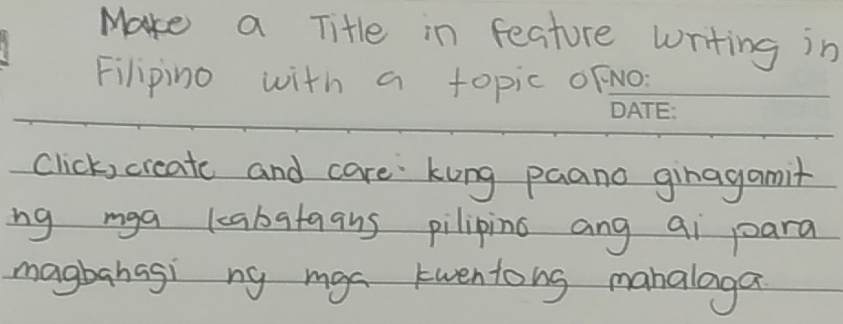 Make a Title in feature writing in
Filipino with a topic of NO:
DATE:
Click, create and care: kung paano ginagamit
ng mga kabataang pilipino ang ai para
magbahagi ng mga kwentong mahalaga.